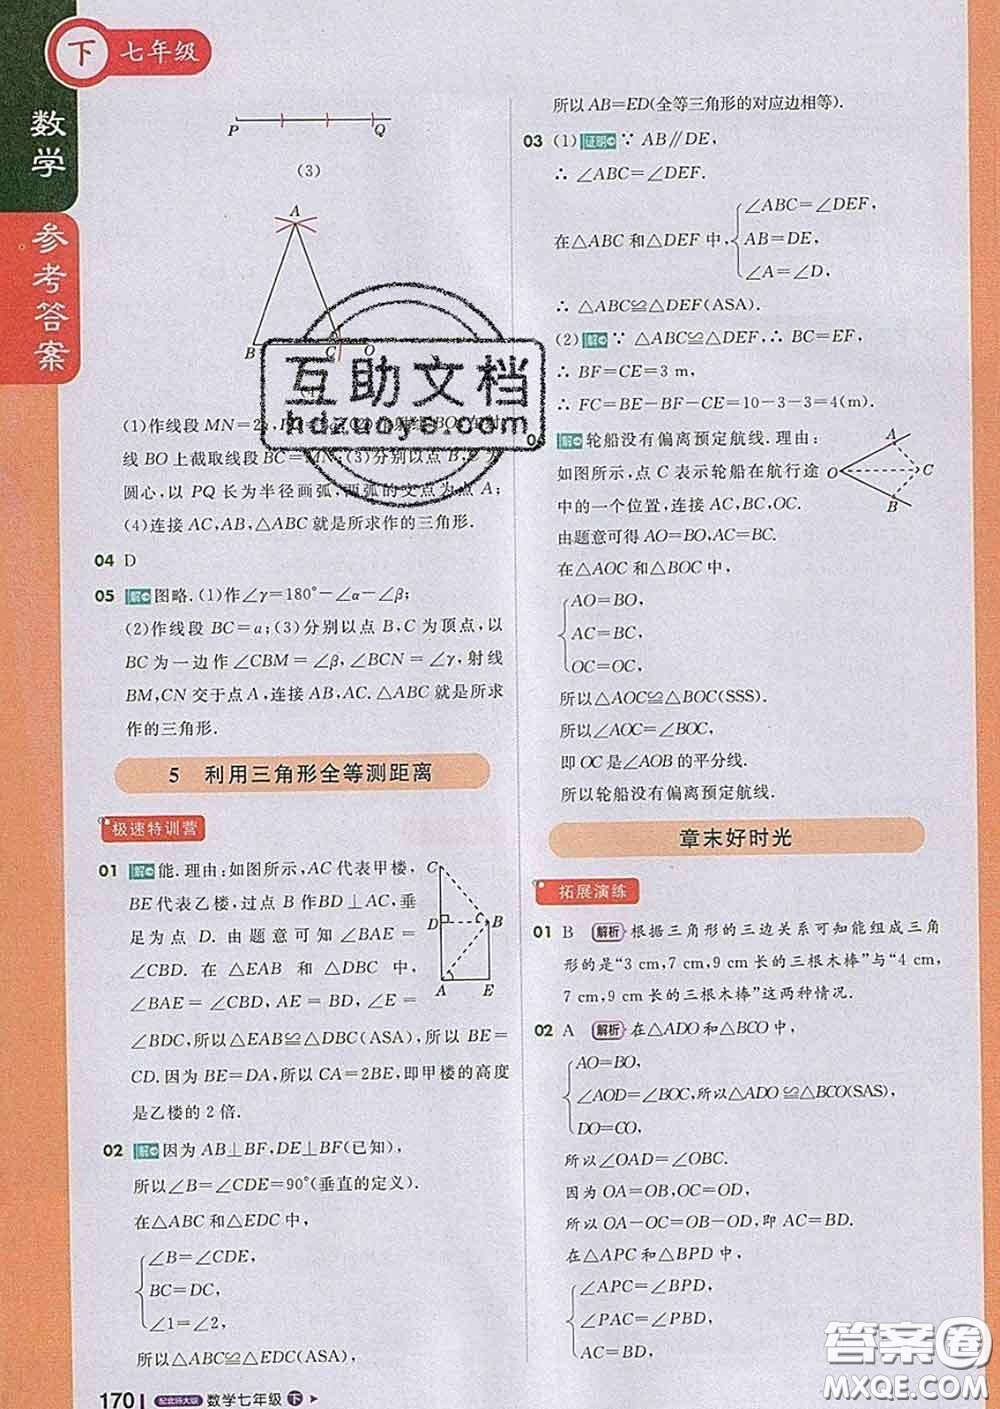 下 七年级
数学
参考答案
P Q
(3)
A
B C O
(1)作线段 MN=2
线 BO 上截取线段 BC=MN;(3)分别以点 B,C 为
圆心,以 PQ 长为半径画弧,两弧的交点为点 A;
(4)连接 AC,AB,△ABC 就是所求作的三角形.
04 D
05 解 图略.(1)作∠γ=180°-∠α-∠β;
(2)作线段 BC=a;(3)分别以点 B,C 为顶点,以
BC 为一边作∠CBM=∠β,∠BCN=∠γ,射线
BM,CN 交于点 A,连接 AB,AC.△ABC 就是所求
作的三角形.
5 利用三角形全等测距离
极速特训营
01 解 能.理由:如图所示,AC 代表甲楼,
BE 代表乙楼,过点 B 作BD⊥AC,垂
足为点 D. 由题意可知∠BAE=
∠CBD. 在△EAB 和△DBC 中,
∠BAE=∠CBD,AE=BD,∠E=
∠BDC,所以△EAB≌△DBC(ASA),所以 BE=
CD.因为 BE=DA,所以 CA=2BE,即甲楼的高度
是乙楼的 2 倍.
C
D B
A E
02 解 因为 AB⊥BF,DE⊥BF(已知),
所以∠B=∠CDE=90°(垂直的定义).
在△ABC 和△EDC 中,
∠B=∠CDE,
BC=DC,
∠1=∠2,
所以△ABC≌△EDC(ASA),
170 配北师大版 数学七年级 下
所以 AB=ED(全等三角形的对应边相等).
03 (1) 证明 ∵ AB∥DE,
∴ ∠ABC=∠DEF.
在△ABC 和△DEF 中,
∠ABC=∠DEF,
AB=DE,
∠A=∠D,
∴ △ABC≌△DEF(ASA).
(2) 解 ∵ △ABC≌△DEF,∴ BC=EF,
∴ BF=CE=3 m,
∴ FC=BE-BF-CE=10-3-3=4(m).
解 轮船没有偏离预定航线.理由:
如图所示,点 C 表示轮船在航行途
中的一个位置,连接 AC,BC,OC.
由题意可得 AO=BO,AC=BC.
在△AOC 和△BOC 中,
A
O C
B
AO=BO,
AC=BC,
OC=OC,
所以△AOC≌△BOC(SSS).
所以∠AOC=∠BOC,
即 OC 是∠AOB 的平分线.
所以轮船没有偏离预定航线.
章末好时光
拓展演练
01 B 解析 根据三角形的三边关系可知能组成三角
形的是“3 cm,7 cm,9 cm 长的三根木棒”与“4 cm,
7 cm,9 cm 长的三根木棒”这两种情况.
02 A 解析 在△ADO 和△BCO 中,
AO=BO,
∠AOD=∠BOC,所以△ADO≌△BCO(SAS),
DO=CO,
所以∠OAD=∠OBC.
因为 OA=OB,OC=OD,
所以 OA-OC=OB-OD,即 AC=BD.
在△APC 和△BPD 中,
∠APC=∠BPD,
∠PAC=∠PBD,
互助文档
hdzuoye.com
答案圈
MXQE.COM